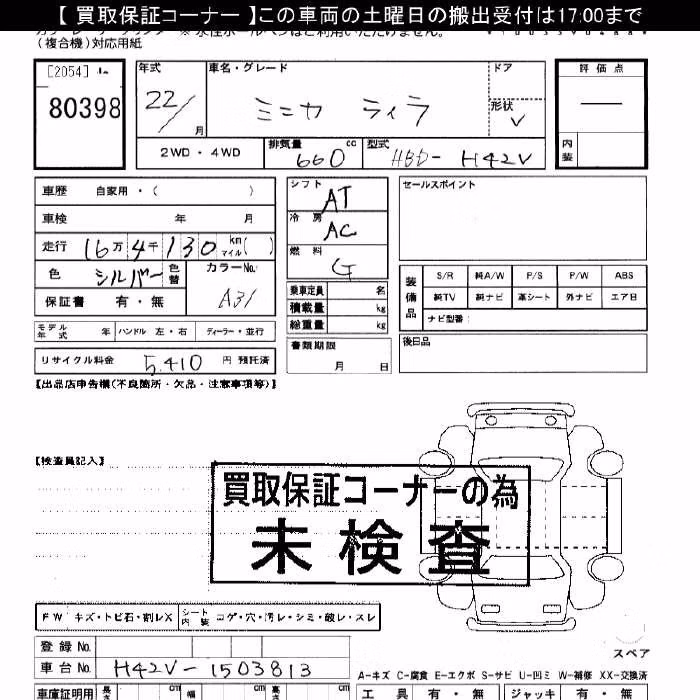 【 買取保証コーナー 】この車両の土曜日の搬出受付は17:00まで
(複合機)対応用紙
[2054]
80398
年式
22/
月
車名・グレード
ミニカ ライラ
ドア
形状
V
評価点
内装
2WD・4WD
排気量
660
cc
型式
HBD-H42V
車歴 自家用・( )
車検 年 月
走行 16万 4千 130 km マイル( )
色 シルバー 色替
カラーNo.
A31
保証書 有・無
モデル年式 年 ハンドル 左・右 ディーラー・並行
リサイクル料金 5,410 円 預託済
シフト
AT
冷房
AC
燃料
G
乗車定員 名
積載量 kg
総重量 kg
書類期限
月 日
セールスポイント
装備品
S/R 純A/W P/S P/W ABS
純TV 純ナビ 革シート 外ナビ エア日
ナビ型番:
後日品
【出品店申告欄(不良箇所・欠品・注意事項等)】
【検査員記入】
買取保証コーナーの為
未検査
FW キズ・トビ石・割レX
シート内装 コゲ・穴・汚レ・シミ・破レ・スレ
登録No.
車台No. H42V-1503813
スペア
A-キズ C-腐食 E-エクボ S-サビ U-凹ミ W-補修 XX-交換済
車庫証明用 長さ cm 幅 cm 高さ cm
工具 有・無 ジャッキ 有・無